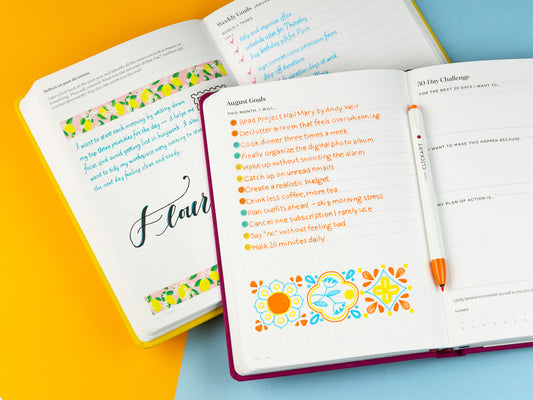 Reflect on past decisions.
I want to start each morning by writing down
my top three priorities for the day
it helps me
focus and avoid getting lost in busywork. I also
want to tidy my workspace every coming to start
the next day feeling clear and ready.
Flour
Weekly Goals JANUARY
GOALS + TASKS
tidy and organize office
schedule intro for Thursday
buy birthday gift for Pam
drop off donations
August Goals
THIS MONTH, I WILL...
Read Project Hail Mary by Andy Weir
Declutter a room that feels overwhelming
Cook dinner three times a week
Finally organize the digital photo album
Wake up without snoozing the alarm
Catch up on unread emails
Create a realistic budget
Drink less coffee, more tea
Plan outfits ahead – skip morning stress
Cancel one subscription I rarely use
Say "no" without feeling bad
Walk 20 minutes daily
CLICKART
30-Day Challenge
FOR THE NEXT 30 DAYS I WANT TO...
I WANT TO MAKE THIS HAPPEN BECAUSE...
MY PLAN OF ACTION IS...
I fully intend to commit myself to this for th
SIGNED